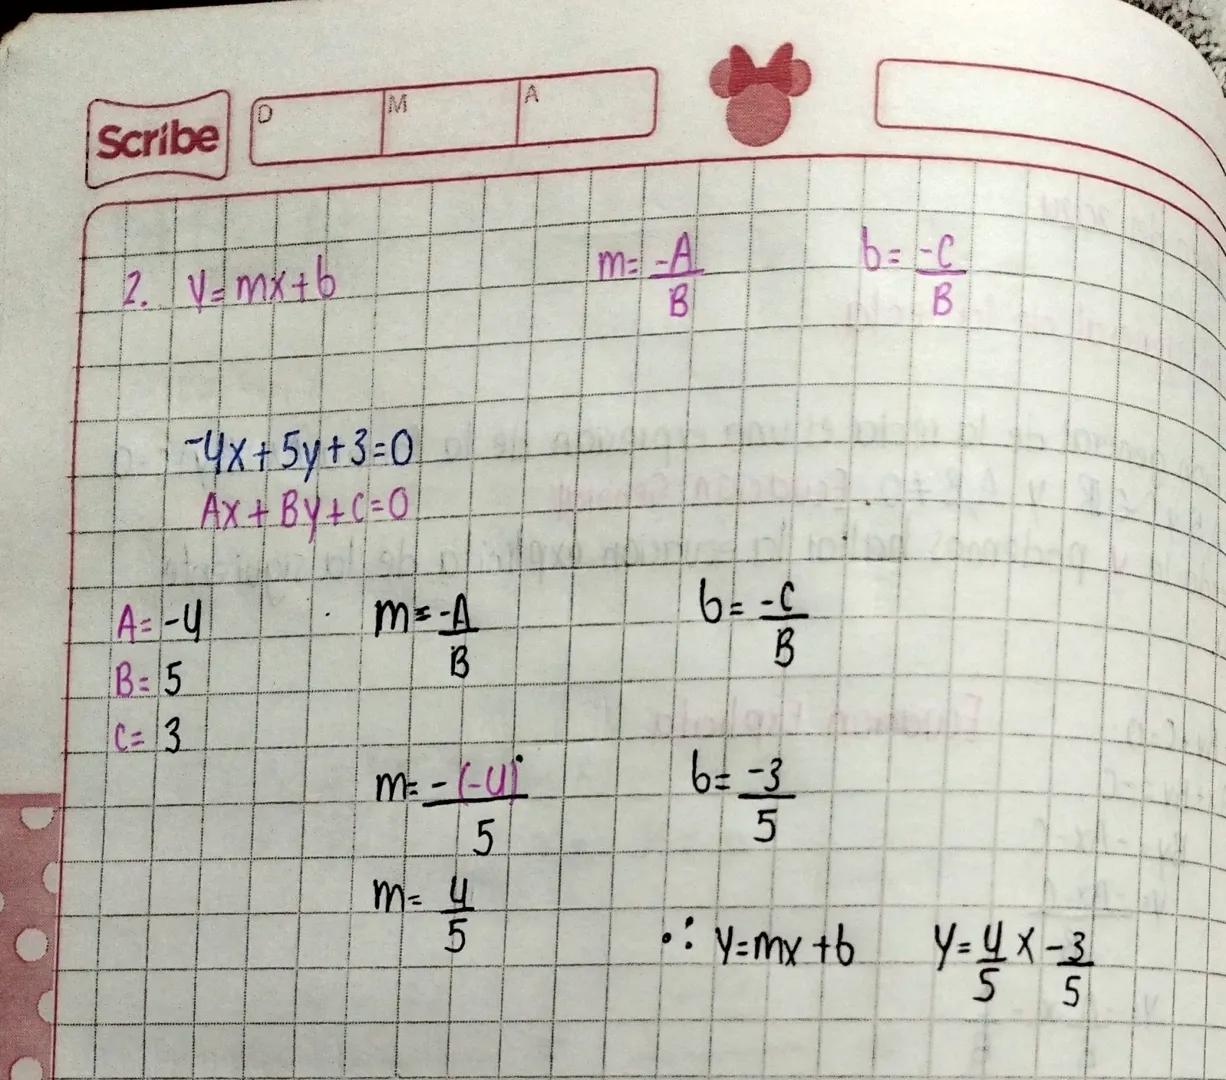 Scribe D M A
2. y=mx+b m=-A/B b=-C/B
-4x+5y+3=0
Ax+By+C=0
A=-4 m=-A/B b=-C/B
B=5
C=3
m=-(-4)/5 b=-3/5
m=4/5
∴ y=mx+b y=4/5 x -3/5